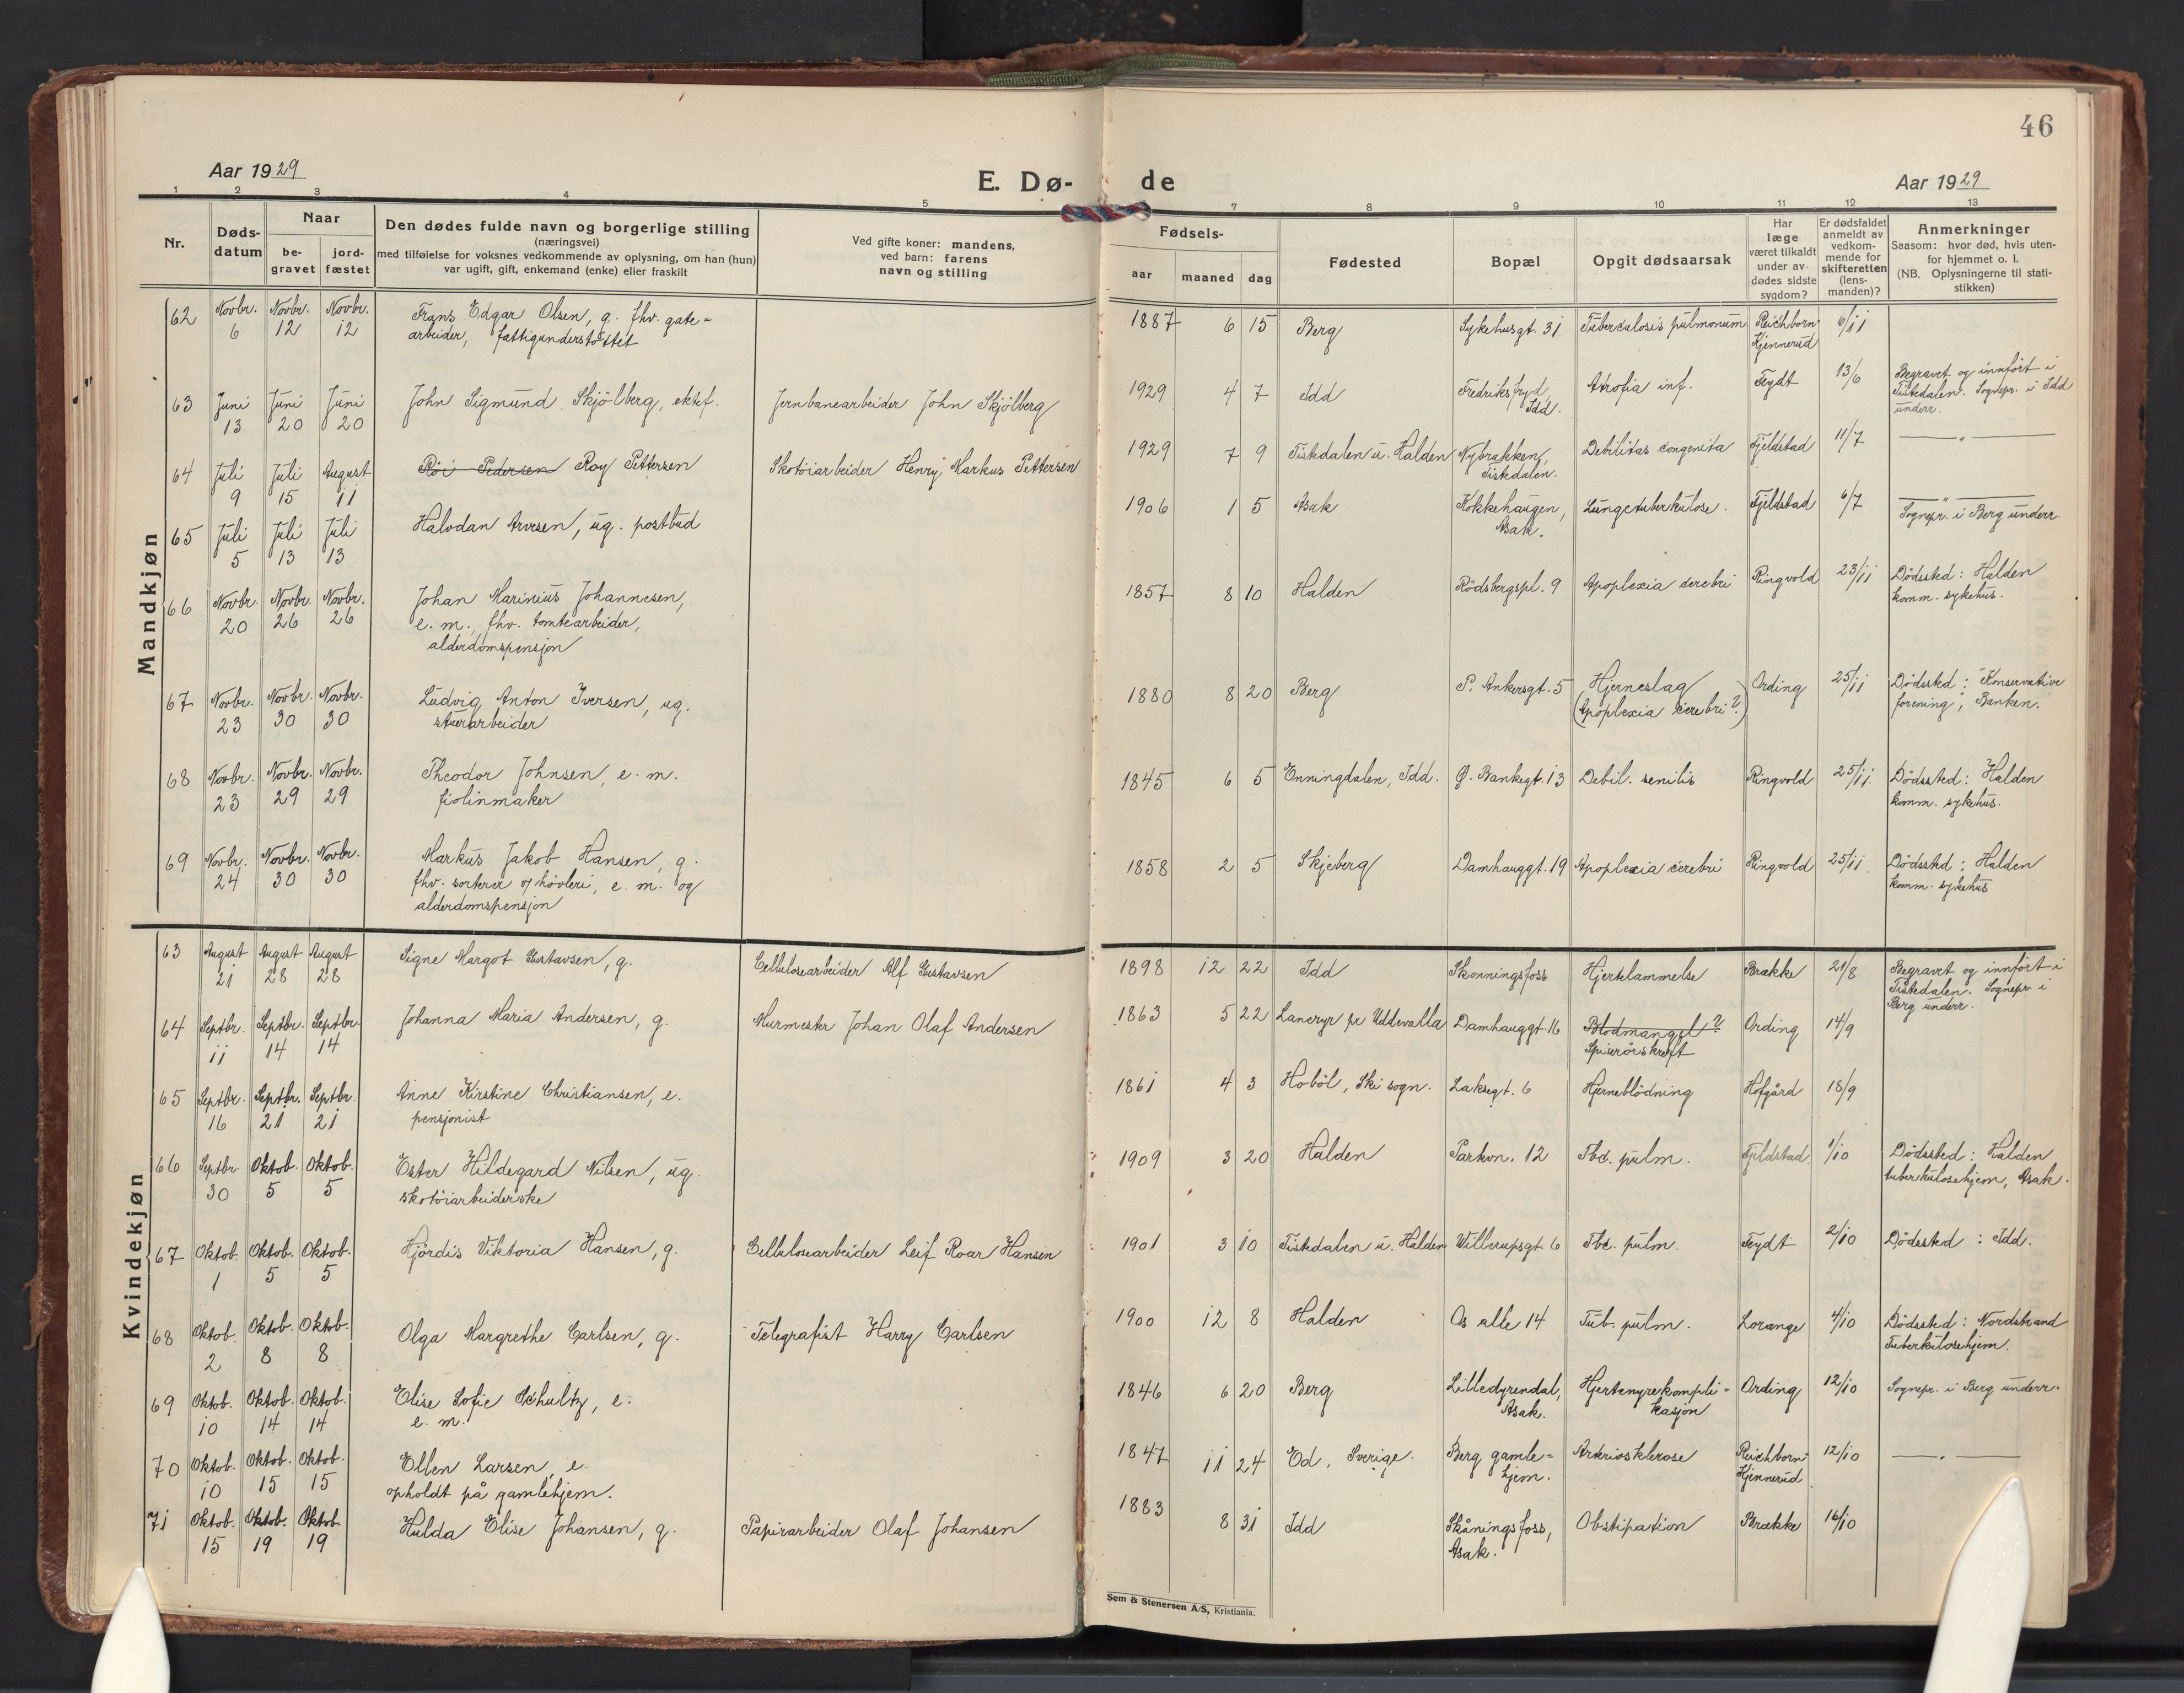 46
Aar 1929
E. Dø-
de
Aar 1929
1 2 3 4 5 7 8 9 10 11 12 13
Nr.
Døds-
datum
Naar
be-
gravet
jord-
fæstet
Den dødes fulde navn og borgerlige stilling
(næringsvei)
med tilføielse for voksnes vedkommende av oplysning, om han (hun)
var ugift, gift, enkemand (enke) eller fraskilt
Ved gifte koner: mandens,
ved barn: farens
navn og stilling
Fødsels-
aar
maaned
dag
Fødested
Bopæl
Opgit dødsaarsak
Har
læge
været tilkaldt
under av-
dødes sidste
sygdom?
Er dødsfaldet
anmeldt av
vedkom-
mende for
skifteretten
(lens-
manden)?
Anmerkninger
Saasom: hvor død, hvis uten-
for hjemmet o. l.
(NB. Oplysningerne til stati-
stikken)
Mandkjøn
62 Novbr. Novbr. Novbr. Frans Edgar Olsen, g. fhv. gate= 1887 6 15 Berg Sykehusgt. 31 Tuberculosis pulmonum Reichborn 6/11
6 12 12 arbeider, fattigunderstøttet Kjennerud
63 Juni Juni Juni John Sigmund Skjölberg, ektef. Jernbanearbeider John Skjölberg 1929 4 7 Idd Fredriksfryd, Atrofia inf. Feydt 13/6 Begravet og innfört i
13 20 20 Idd. Tistedalen. Sognepr. i Idd
underr.
64 Juli Juli August Röi Pedersen Roy Pettersen Skotöiarbeider Henry Markus Pettersen 1929 7 9 Tistedalen u. Halden Nybrakken, Debilitas congenita Fjeldstad 11/7 — " —
9 15 11 Tistedalen.
65 Juli Juli Juli Halvdan Arvesen, ug. postbud 1906 1 5 Asak Kokkehaugen, Lungetuberkulose. Fjeldstad 6/7 — " —
5 13 13 Asak. Sognepr. i Berg underr.
66 Novbr. Novbr. Novbr. Johan Marinius Johannesen, 1857 8 10 Halden Rödsbergspl. 9 Apoplexia cerebri Ringvold 23/11 Dödssted: Halden
20 26 26 e. m. fhv. tomtearbeider, komm. sykehus.
alderdomspensjon
67 Novbr. Novbr. Novbr. Ludvig Anton Iversen, ug. 1880 8 20 Berg P. Ankersgt. 5 Hjerneslag Ording 25/11 Dödssted: "Konservative
23 30 30 stuerarbeider (Apoplexia cerebri?) forening", Banken.
68 Novbr. Novbr. Novbr. Theodor Johnsen, e. m. 1845 6 5 Enningdalen, Idd. Ø. Bankegt. 13 Debil. senilis Ringvold 25/11. Dödssted: Halden
23 29 29 fiolinmaker komm. sykehus.
69 Novbr. Novbr. Novbr. Markus Jakob Hansen, g. 1858 2 5 Skjeberg Damhauggt. 19 Apoplexia cerebri Ringvold 25/11. Dödssted: Halden
24 30 30 fhv. sorterer på hövleri, e. m. og komm. sykehus
alderdomspensjon
Kvindekjøn
63 August August August Signe Margot Gustavsen, g. Cellulosearbeider Alf Gustavsen 1898 12 22 Idd Skonningsfoss Hjertelammelse Brække 21/8 Begravet og innfört i
21 28 28 Tistedalen. Sognepr. i
Berg underr.
64 Septbr. Septbr. Septbr. Johanna Maria Andersen, g. Murmester Johan Olaf Andersen 1863 5 22 Laneryr pr Uddevalla Damhauggt. 16 Blodmangel? Ording 14/9
11 14 14 Spiserörskreft
65 Septbr. Septbr. Septbr. Anne Kirstine Christiansen, e. 1861 4 3 Hoböl, Ski sogn. Laksegt. 6 Hjerneblödning Hofgård 18/9
16 21 21 pensjonist
66 Septbr. Oktob. Oktob. Ester Hildegard Nilsen, ug. 1909 3 20 Halden Parkvn. 12 Tbc. pulm. Fjeldstad 1/10 Dödssted: Halden
30 5 5 skotöiarbeiderske tuberkulosehjem, Asak.
67 Oktob. Oktob. Oktob. Hjördis Viktoria Hansen, g. Cellulosearbeider Leif Roar Hansen 1901 3 10 Tistedalen u. Halden Willerupsgt 6 Tbc. pulm. Feydt 2/10 Dödssted: Idd.
1 5 5
68 Oktob. Oktob. Oktob. Olga Margrethe Carlsen, g. Telegrafist Harry Carlsen 1900 12 8 Halden Os alle 14 Tub. pulm. Lorange 4/10 Dödssted: Nordstrand
2 8 8 Tuberkulosehjem.
69 Oktob. Oktob. Oktob. Elise Sofie Schultz, e. 1846 6 20 Berg Lilledyrendal, Hjertenyrekompli- Ording 12/10 Sognepr. i Berg underr.
10 14 14 e. m. Asak. kasjon
70 Oktob. Oktob. Oktob. Ellen Larsen, e. 1847 11 24 Ed, Sverige. Berg gamle= Arteriosklerose Reichborn 12/10 — " —
10 15 15 opholdt på gamlehjem. hjem. Kjennerud
71 Oktob. Oktob. Oktob Hulda Elise Johansen, g. Papirarbeider Olaf Johansen 1883 8 31 Idd Skåningsfoss, Obstipation Brække 16/10
15 19 19 Asak.
Sem & Stenersen A/S, Kristiania.